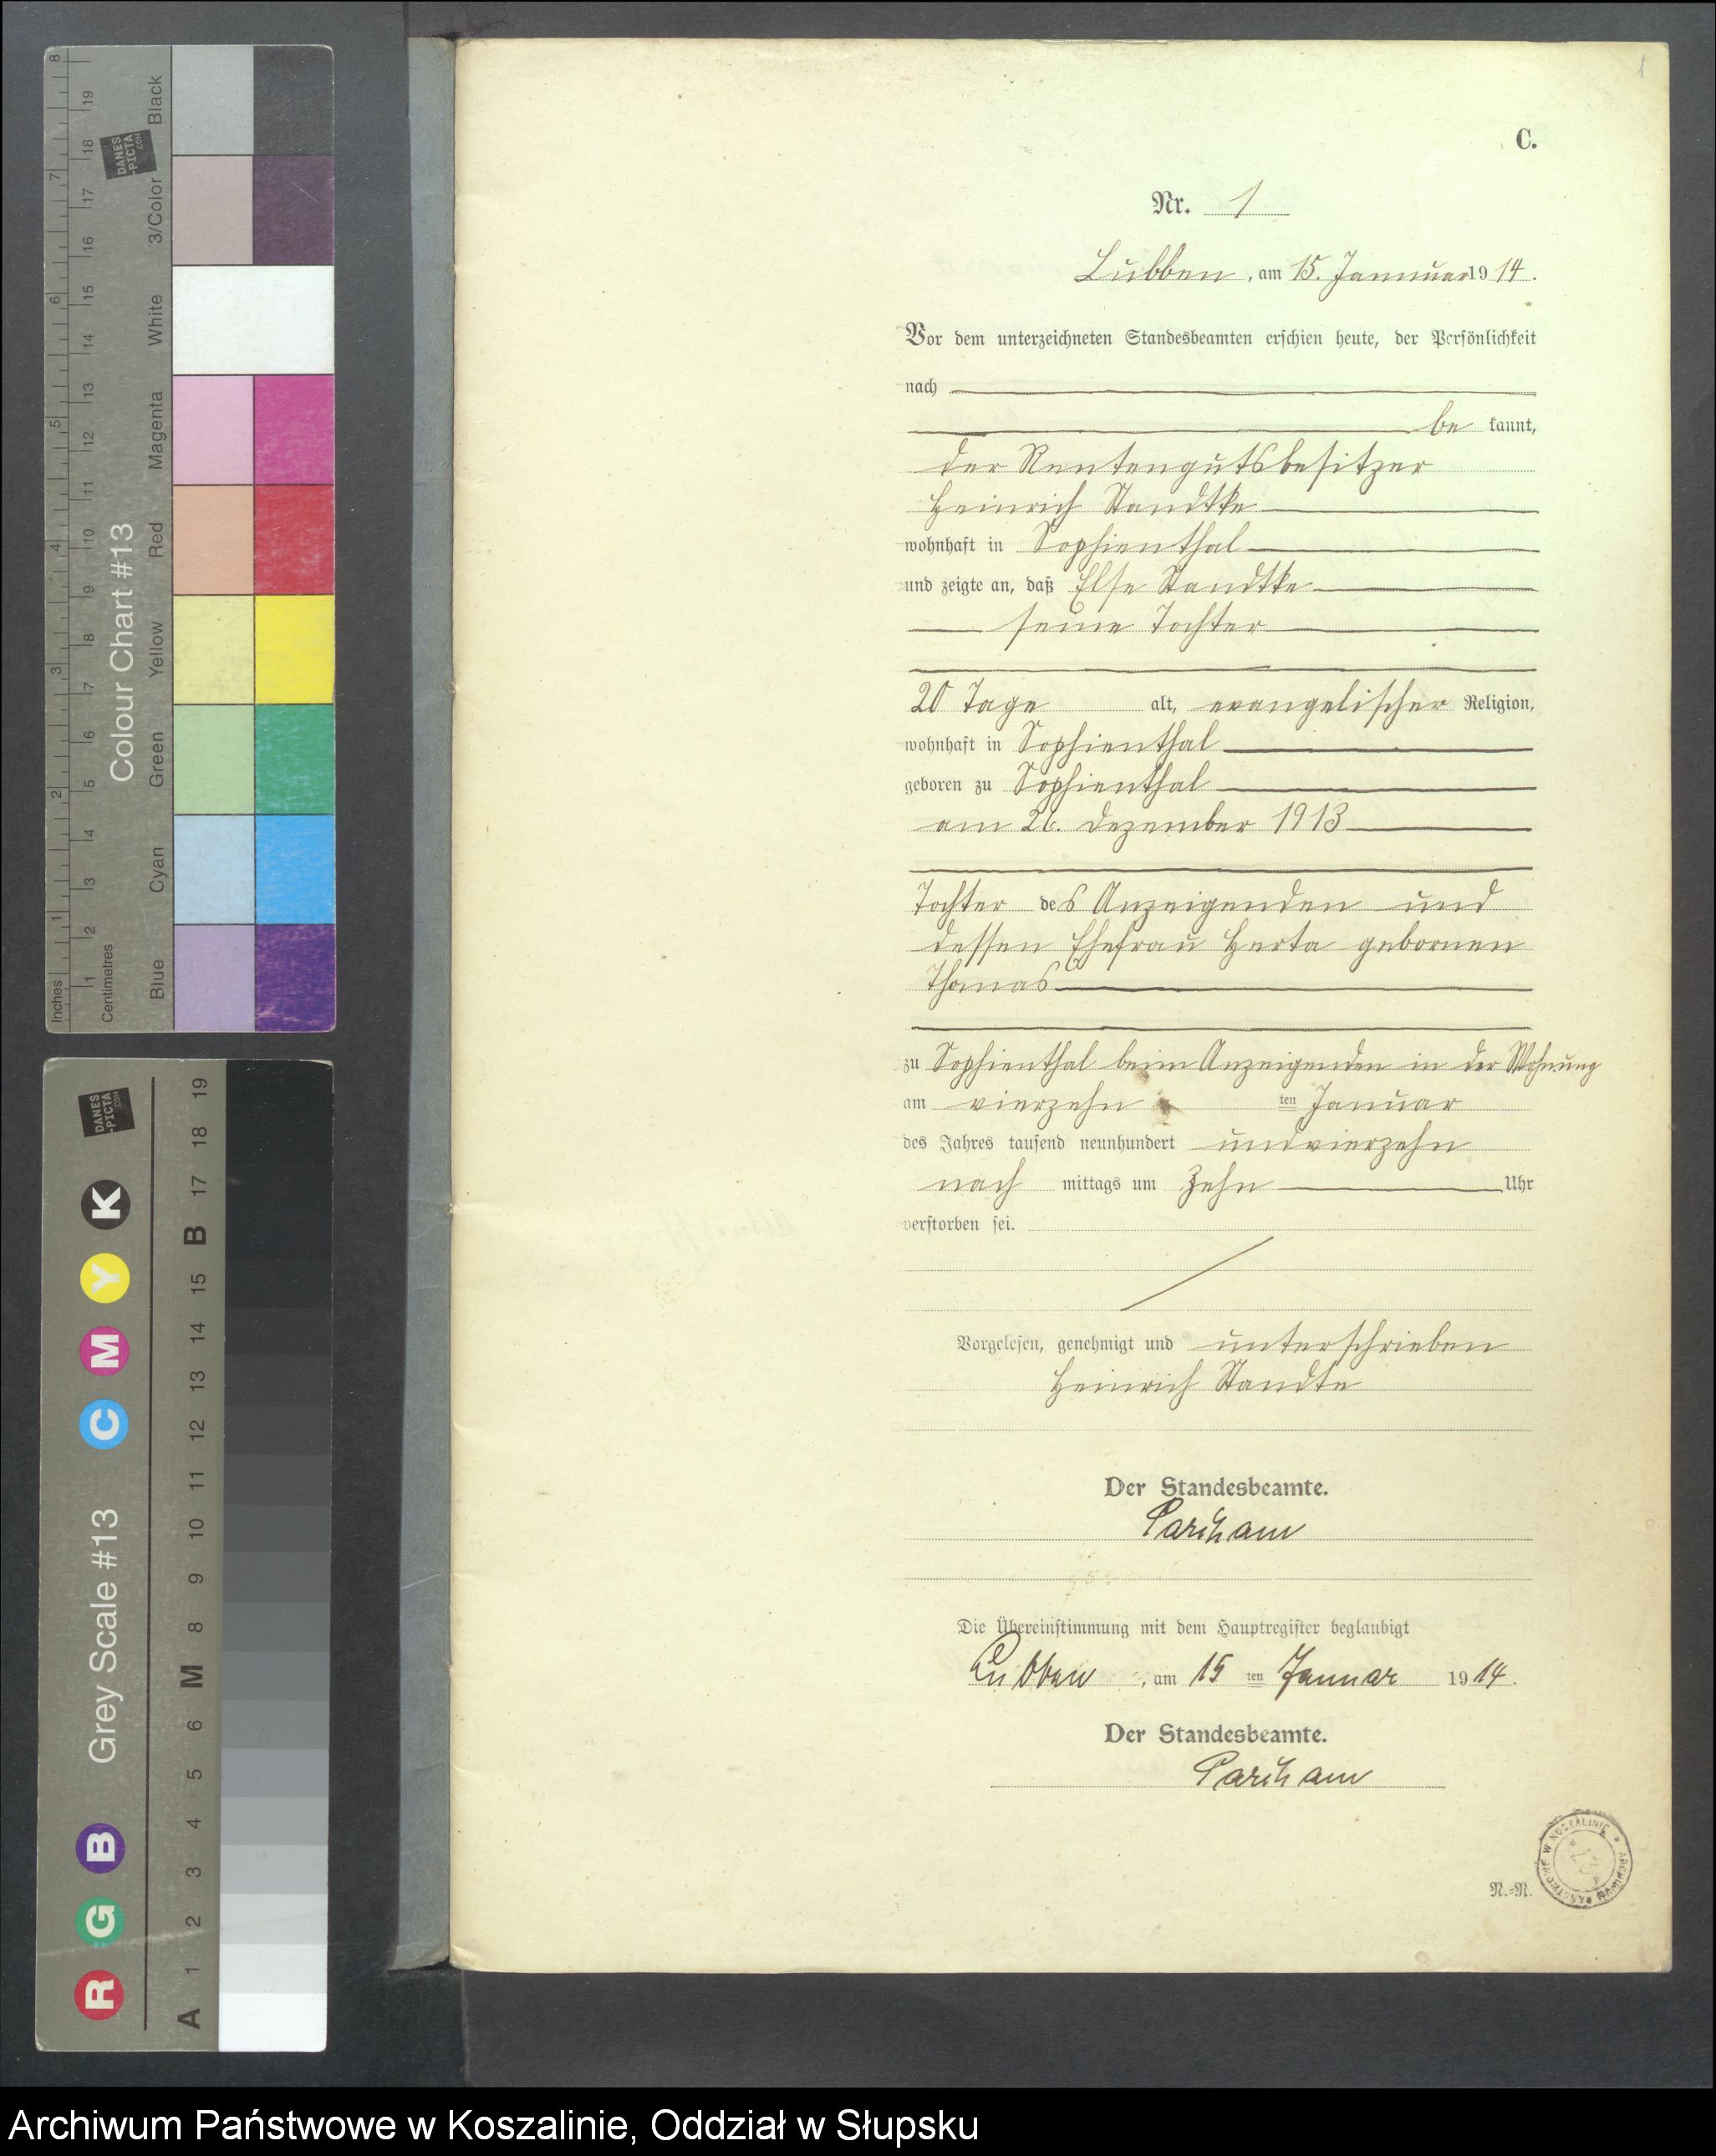 1
C.
Nr. 1
Lübben, am 15. Januar 1914.
Vor dem unterzeichneten Standesbeamten erschien heute, der Persönlichkeit
nach
be kannt,
der Rentengutsbesitzer
Heinrich Standtke
wohnhaft in Sophienthal
und zeigte an, daß Else Standtke
seine Tochter
20 Tage alt, evangelischer Religion,
wohnhaft in Sophienthal
geboren zu Sophienthal
am 26. Dezember 1913
Tochter des Anzeigenden und
dessen Ehefrau Herta gebornen
Thomas
zu Sophienthal beim Anzeigenden in der Wohnung
am vierzehn ten Januar
des Jahres tausend neunhundert undvierzehn
nach mittags um zehn Uhr
verstorben sei.
Vorgelesen, genehmigt und unterschrieben
Heinrich Standke
Der Standesbeamte.
Die Übereinstimmung mit dem Hauptregister beglaubigt
Lübben, am 15 ten Januar 1914.
Der Standesbeamte.
N.=N.
ARCHIWUM PAŃSTWOWE W KOSZALINIE
Inches
1 2 3 4 5 6 7 8
Centimetres
1 2 3 4 5 6 7 8 9 10 11 12 13 14 15 16 17 18 19
Colour Chart #13
Blue Cyan Green Yellow Red Magenta White 3/Color Black
DANES
-PICTA
.COM
Grey Scale #13
R G B C M Y K
A 1 2 3 4 5 6 M 8 9 10 11 12 13 14 15 B 17 18 19
DANES
-PICTA
.COM
Archiwum Państwowe w Koszalinie, Oddział w Słupsku